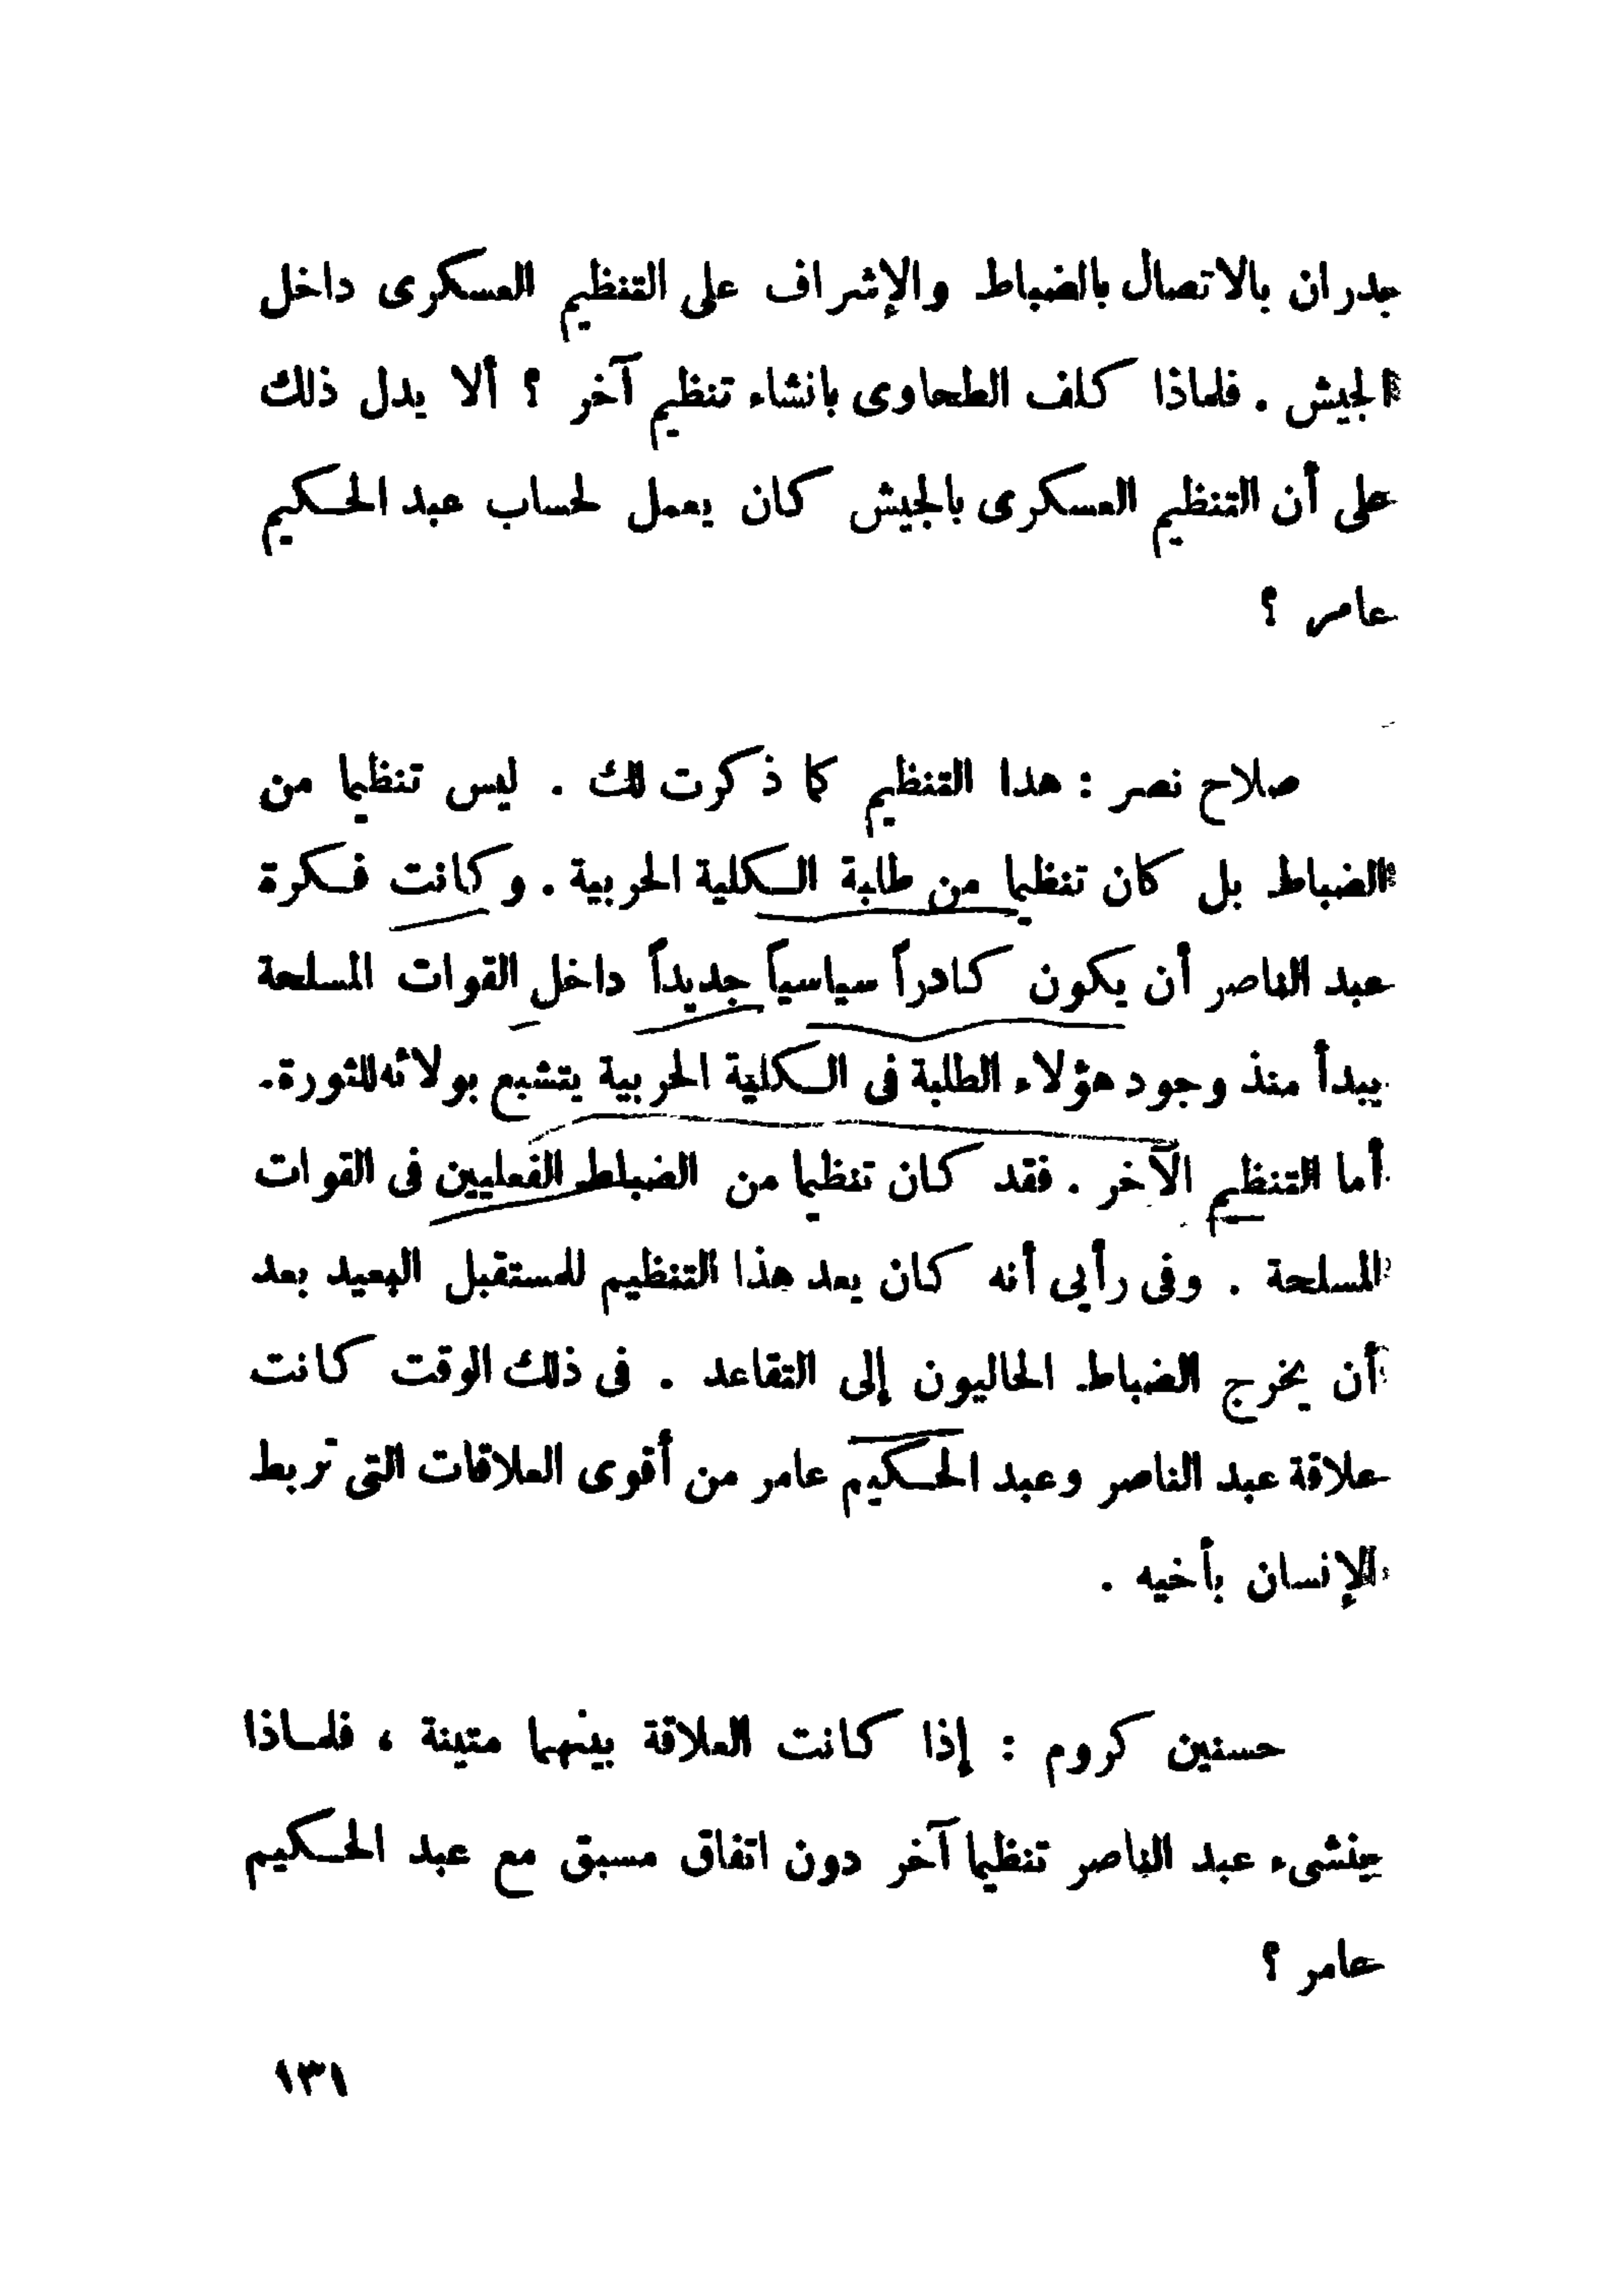 بدران بالاتصال بالضباط والإشراف على التنظيم العسكرى داخل
الجيش . فلماذا كلف الطحاوى بانشاء تنظيم آخر ؟ ألا يدل ذلك
على أن التنظيم العسكرى بالجيش كان يعمل لحساب عبد الحكيم
عامر ؟
صلاح نصر : هذا التنظيم كما ذكرت لك . ليس تنظيما من
الضباط بل كان تنظيما من طلبة الكلية الحربية . وكانت فكرة
عبد الناصر أن يكون كادراً سياسياً جديداً داخل القوات المسلحة
يبدأ منذ وجود هؤلاء الطلبة فى الكلية الحربية يتشبع بولائه للثورة.
أما التنظيم الآخر . فقد كان تنظيما من الضباط الفعليين فى القوات
المسلحة . وفى رأيى أنه كان يعد هذا التنظيم للمستقبل البعيد بعد
أن يخرج الضباط الحاليون إلى التقاعد . فى ذلك الوقت كانت
علاقة عبد الناصر وعبد الحكيم عامر من أقوى العلاقات التى تربط
الإنسان بأخيه .
حسنين كروم : إذا كانت العلاقة بينهما متينة ، فلماذا
ينشىء عبد الناصر تنظيما آخر دون اتفاق مسبق مع عبد الحكيم
عامر ؟
١٣١